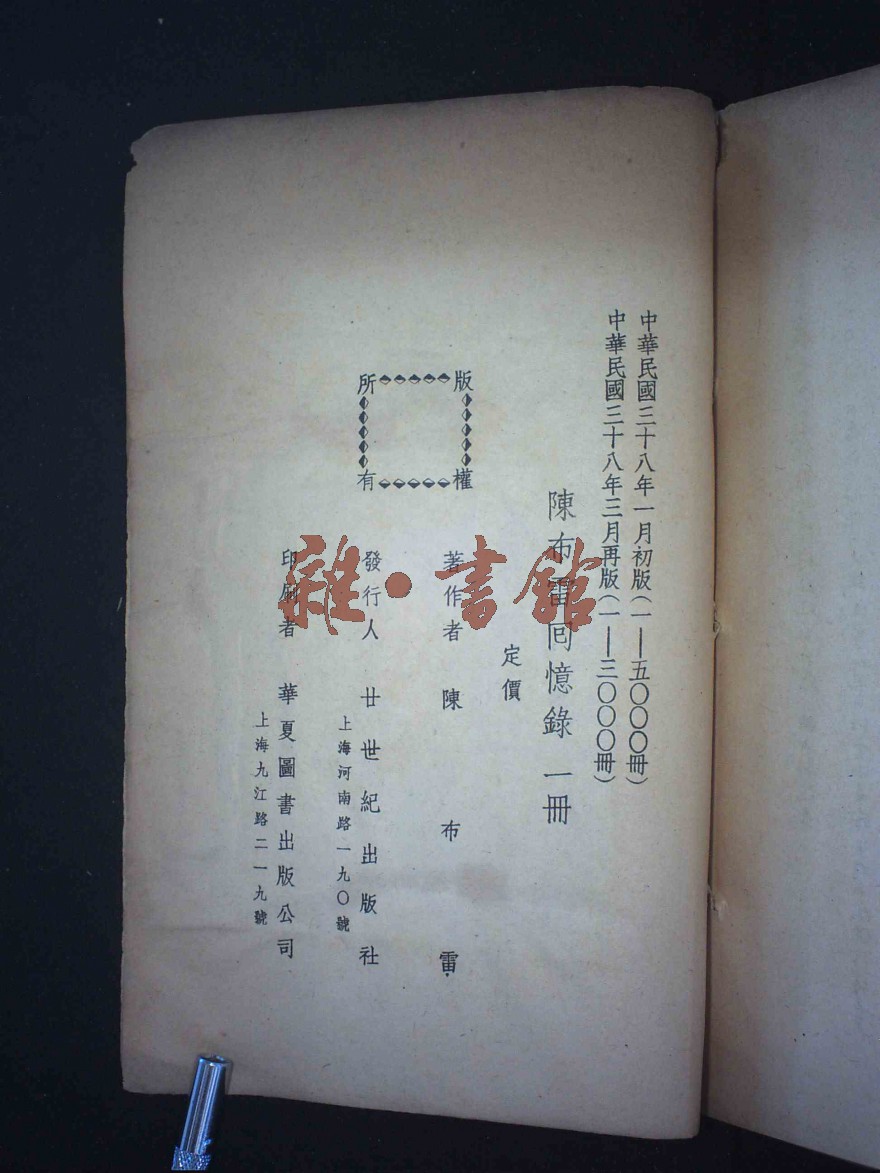 中華民國三十八年一月初版(一——五〇〇〇冊)
中華民國三十八年三月再版(一——三〇〇〇冊)
陳布雷回憶錄 一冊
定價
版權所有
著作者 陳布雷
發行人 廿世紀出版社
上海河南路一九〇號
印刷者 華夏圖書出版公司
上海九江路二一九號
雜·書館